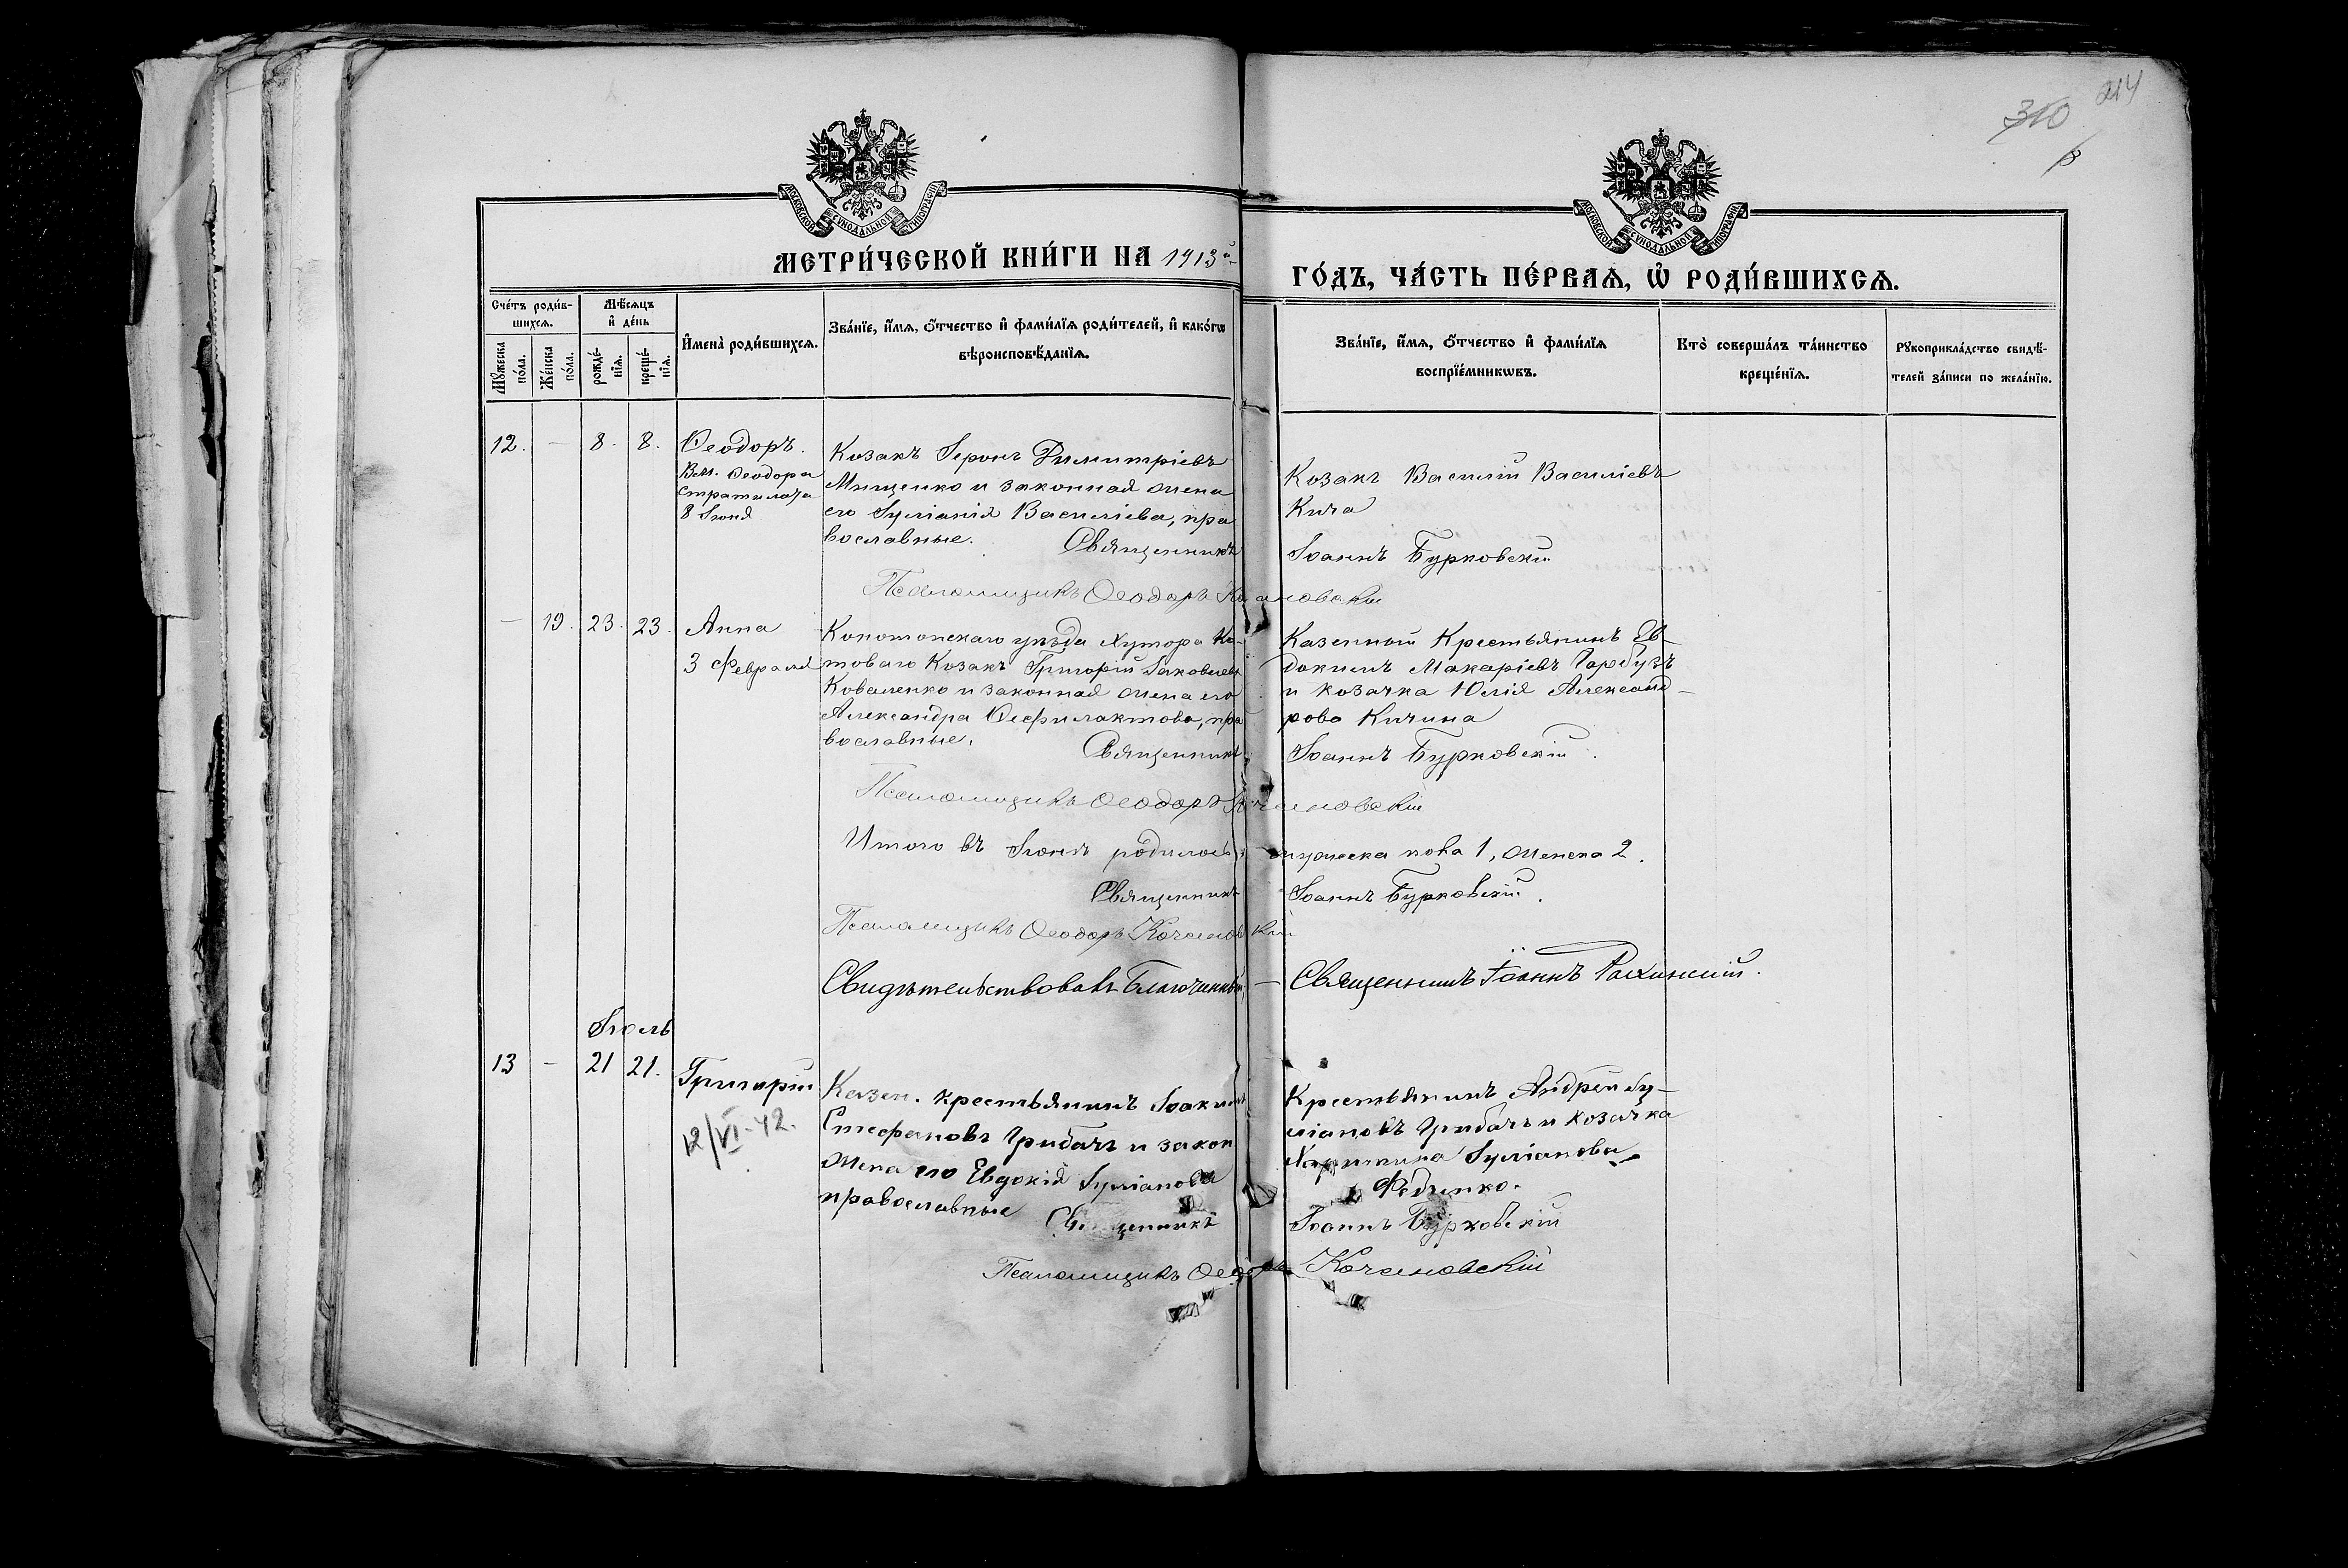 214
310
МОСКОВСКОЙ СѴНОДАЛЬНОЙ ТИПОГРАФІИ
МОСКОВСКОЙ СѴНОДАЛЬНОЙ ТИПОГРАФІИ
МЕТРИ́ЧЕСКОЙ КНИ́ГИ НА 1913й
ГО́ДЪ, ЧА́СТЬ ПЕ́РВАѦ, Ѽ РОДИ́ВШИХСѦ.
Сче́тъ роди́в-
шихсѧ.
Мѣ́сѧцъ
и҆ де́нь
Мꙋ́жеска
по́ла.
Же́нска
по́ла.
рожде́-
нїѧ.
креще́-
нїѧ.
И҆мена̀ роди́вшихсѧ.
Зва́нїе, и҆́мѧ, ѻ҆́тчество и҆ фами́лїѧ роди́телей, и҆ како́гѡ
вѣроисповѣ́данїѧ.
Зва́нїе, и҆́мѧ, ѻ҆́тчество и҆ фами́лїѧ
воспрїе́мникѡвъ.
Кто̀ соверша́лъ та́инство
креще́нїѧ.
Рꙋкоприкла́дство свидѣ́-
телей за́писи по жела́нїю.
12. — 8. 8. Ѳеодоръ.
Вм. Ѳеодора
Стратилата
8 Іюня
Козакъ Іеронъ Димитріевъ
Мищенко и законная жена
его Іуліанія Василіева, пра
вославные. Священникъ
Козакъ Василій Василіевъ
Кича
Іоаннъ Бурковскій
Псаломщикъ Ѳеодоръ Качановскій
— 19. 23. 23. Анна
3 Февраля
Конотопскаго уѣзда Хутора Ко-
товаго Козакъ Григорій Іаковлевъ
Коваленко и законная жена его
Александра Ѳеофилактова, пра
вославные. Священникъ
Казенный Крестьянинъ Ев-
докимъ Макаріевъ Гарбузъ
и козачка Юлія Александ-
рова Кичина
Іоаннъ Бурковскій.
Псаломщикъ Ѳеодоръ Качановскій
Итого въ Іюнѣ родилось мужеска пола 1, женска 2.
Священникъ Іоаннъ Бурковскій.
Псаломщикъ Ѳеодоръ Качановскій
Свидѣтельствовалъ Благочинный, — Священникъ Іоаннъ
Іюль
13 — 21 21. Григорій
12/VI-42.
Казен. крестьянинъ Іоакимъ
Стефановъ Грибачъ и закон
жена его Евдокія Іуліанова
православные Священникъ
Крестьянинъ Андрей Іу-
ліановъ Грибачъ и козачка
Іуліанова
Феденко.
Іоаннъ Бурковскій
Псаломщикъ Ѳеодоръ Качановскій